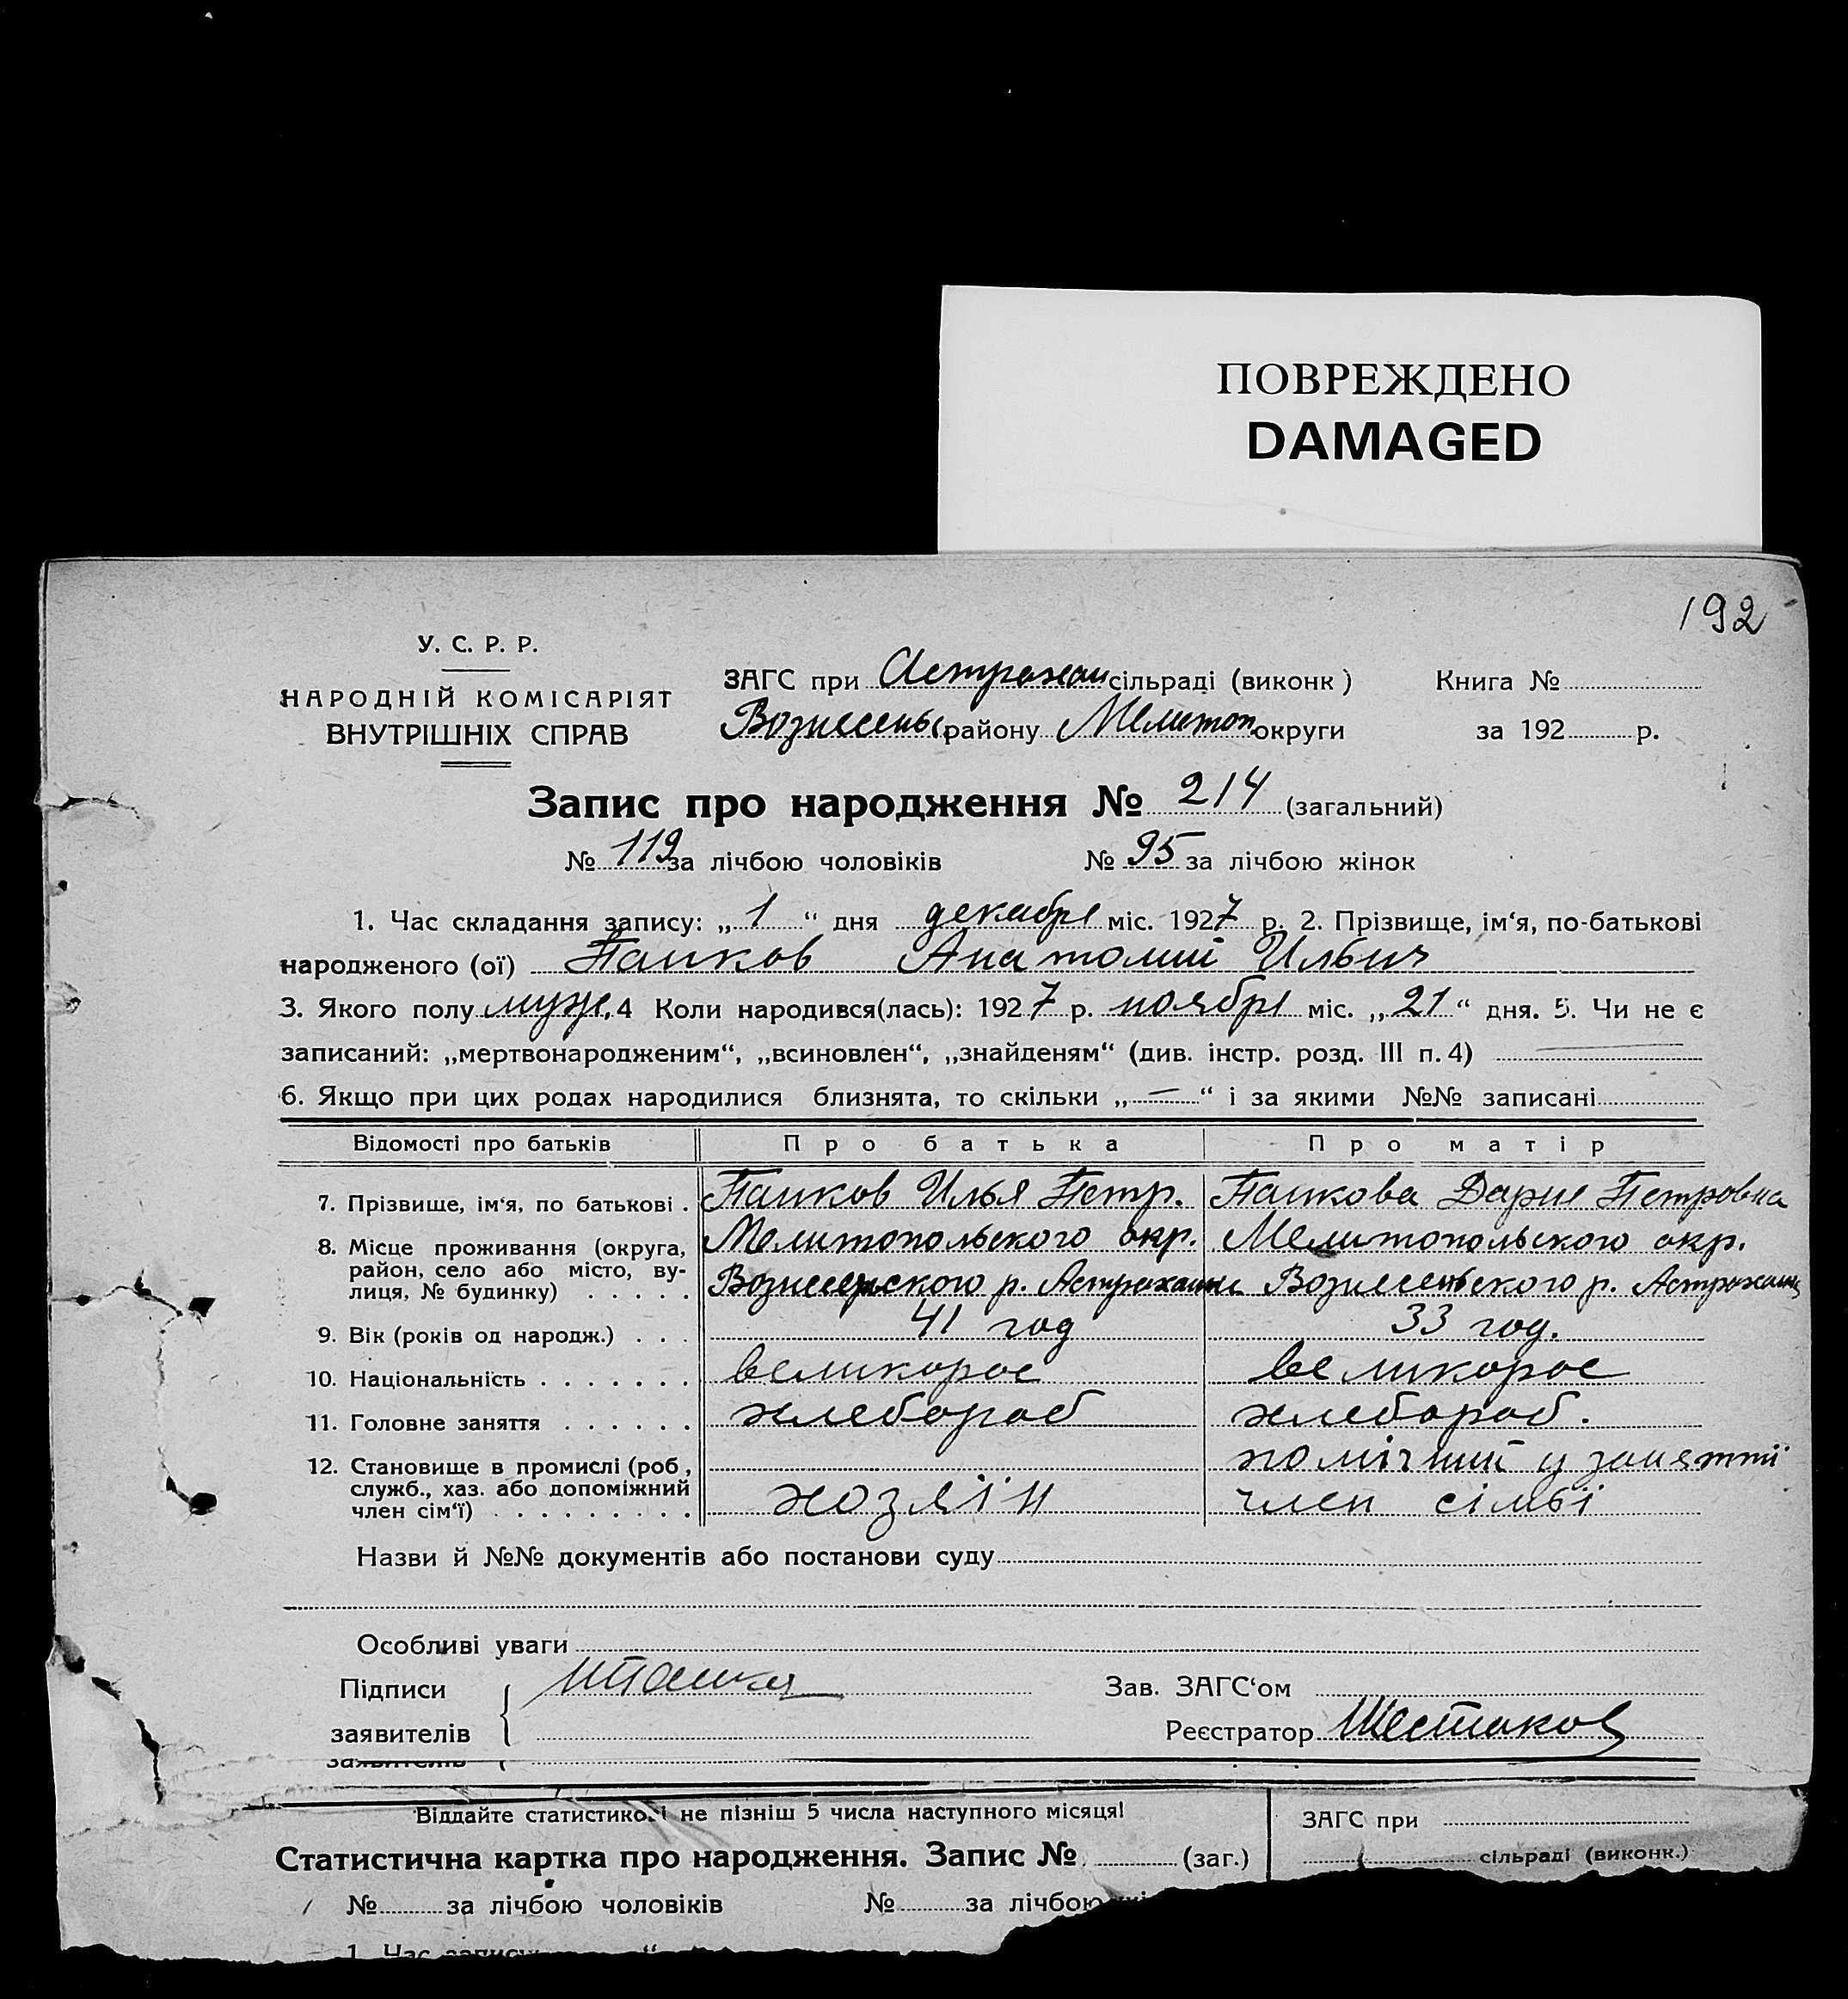 ПОВРЕЖДЕНО
DAMAGED
192
У. С. Р. Р.
НАРОДНІЙ КОМІСАРІЯТ
ВНУТРІШНІХ СПРАВ
ЗАГС при Астрахан сільраді (виконк)
Вознесеньс району Мелитоп округи
Книга №
за 192 р.
Запис про народження № 214 (загальний)
№ 119 за лічбою чоловіків № 95 за лічбою жінок
1. Час складання запису: „ 1 “ дня декабря міс. 1927 р. 2. Прізвище, ім‘я, по-батькові
народженого (ої) Папков Анатолий Ильич
3. Якого полу муж. 4 Коли народився(лась): 1927 р. ноября міс. „ 21 “ дня. 5. Чи не є
записаний: „мертвонародженим“, „всиновлен“, „знайденям“ (див. інстр. розд. III п. 4) —
6. Якщо при цих родах народилися близнята, то скільки „ — “ і за якими №№ записані
Відомості про батьків Про батька Про матір
7. Прізвище, ім‘я, по батькові . Папков Илья Петр. Папкова Дария Петровна
8. Місце проживання (округа, Мелитопольского окр. Мелитопольского окр.
район, село або місто, ву-
лиця, № будинку) . . . . . Вознесенского р. Астраханки Вознесеньского р. Астраханк
9. Вік (років од народж.) . . . 41 год 33 год.
10. Національність . . . . . . . великорос великорос
11. Головне заняття . . . . . . хлебороб хлебороб.
12. Становище в промислі (роб, помічний у занятті
служб., хаз. або допоміжний
член сім‘ї) . . . . . . . . . хозяїн член сімьї
Назви й №№ документів або постанови суду
Особливі уваги
Підписи
заявителів
Зав. ЗАГС‘ом
Реєстратор Шестаков
заявителів
Віддайте статистикові не пізніш 5 числа наступного місяця!
Статистична картка про народження. Запис № (заг.)
ЗАГС при
сільраді (виконк.)
№ за лічбою чоловіків № за лічбою
1. Час запису